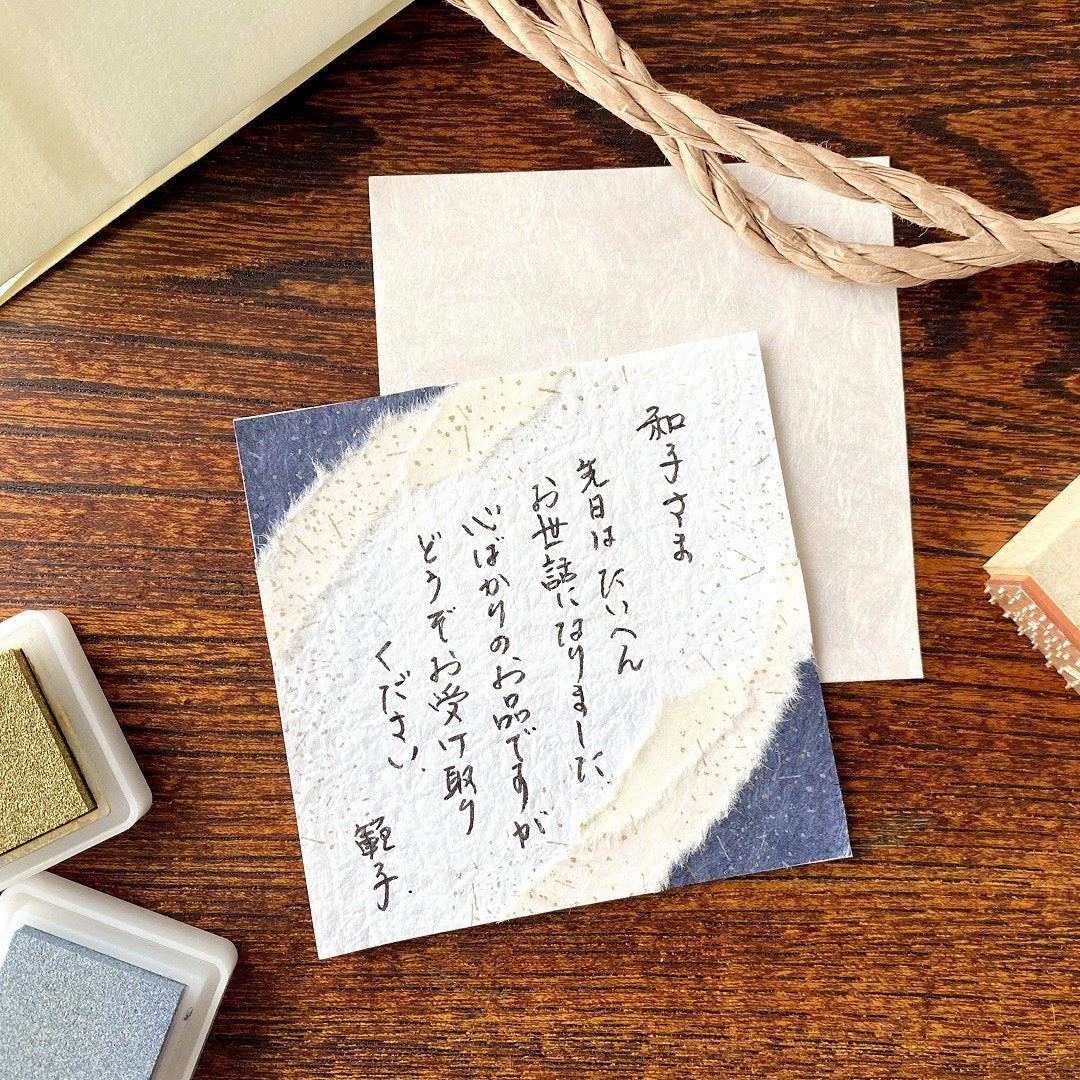 和子さま
先日はたいへん
お世話になりました
心ばかりのお品ですが
どうぞお受け取り
ください.
範子.